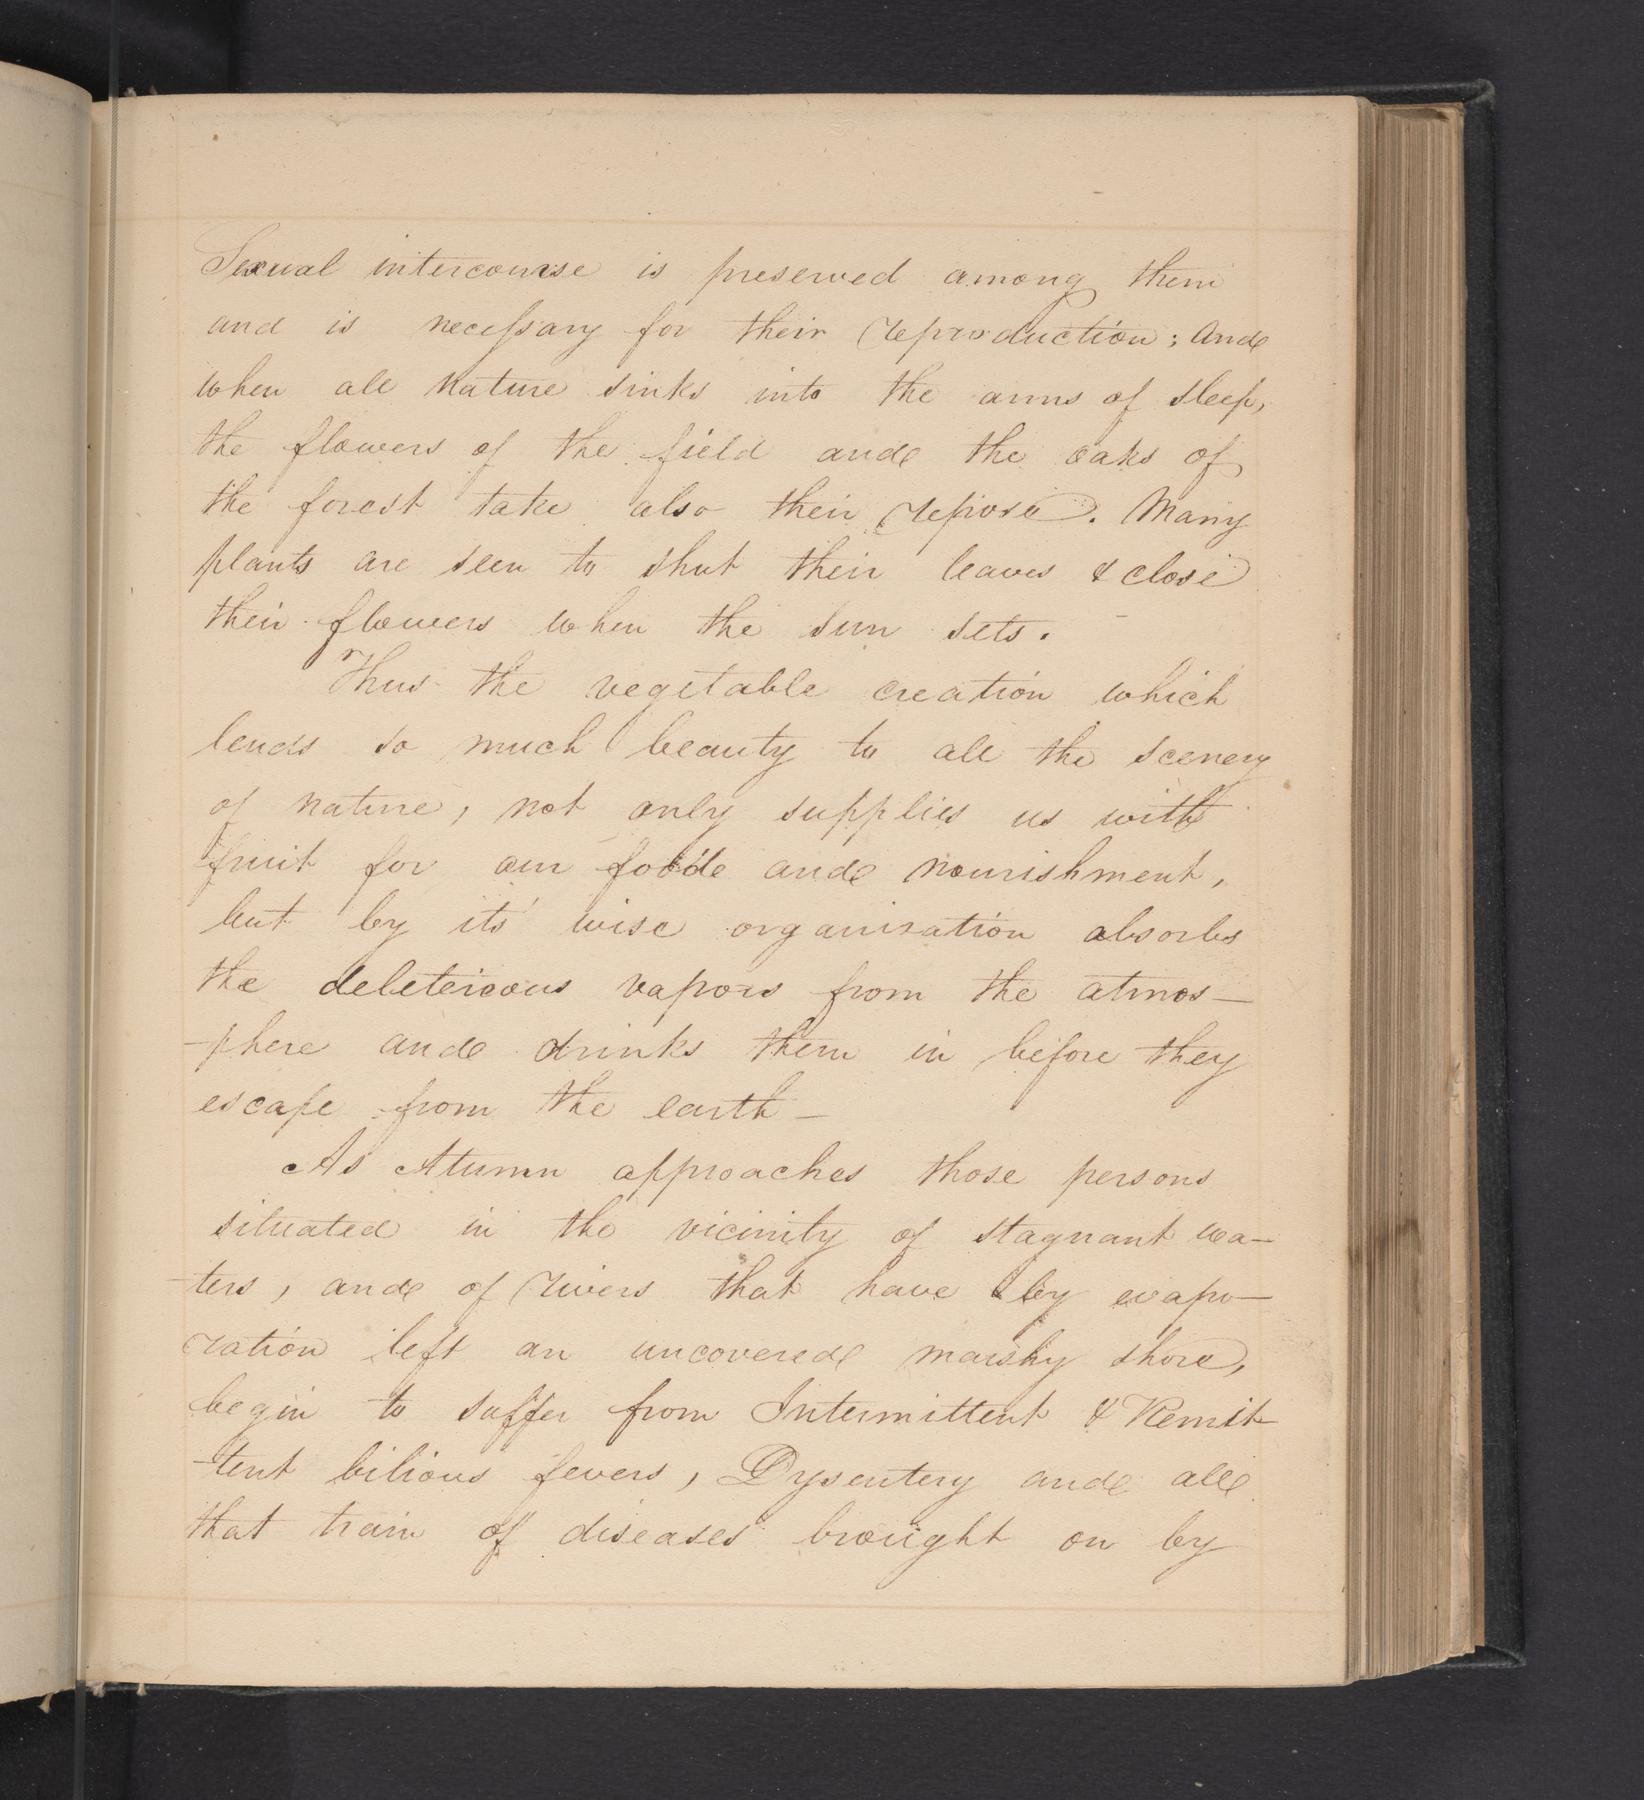 Sexual intercourse is preserved among them
and is necessary for their reproduction; and
when all nature sinks into the arms of sleep,
the flowers of the field and the oaks of
the forest take also their repose. Many
plants are seen to shut their leaves & close
their flowers when the sun sets.
Thus the vegetable creation which
lends so much beauty to all the scenery
of nature, not only supplies us with
fruit for our food and nourishment,
but by its wise organization absorbs
the deletereous vapors from the atmos-
-phere and drinks them in before they
escape from the earth-
As Atumn approaches those persons
situated in the vicinity of stagnant wa-
-ters, and of rivers that have by evapo-
ration left an uncovered marshy shore,
begin to suffer from Intermittent & Remit-
-tent bilious fevers, Dysentery and all
that train of diseases brought on by